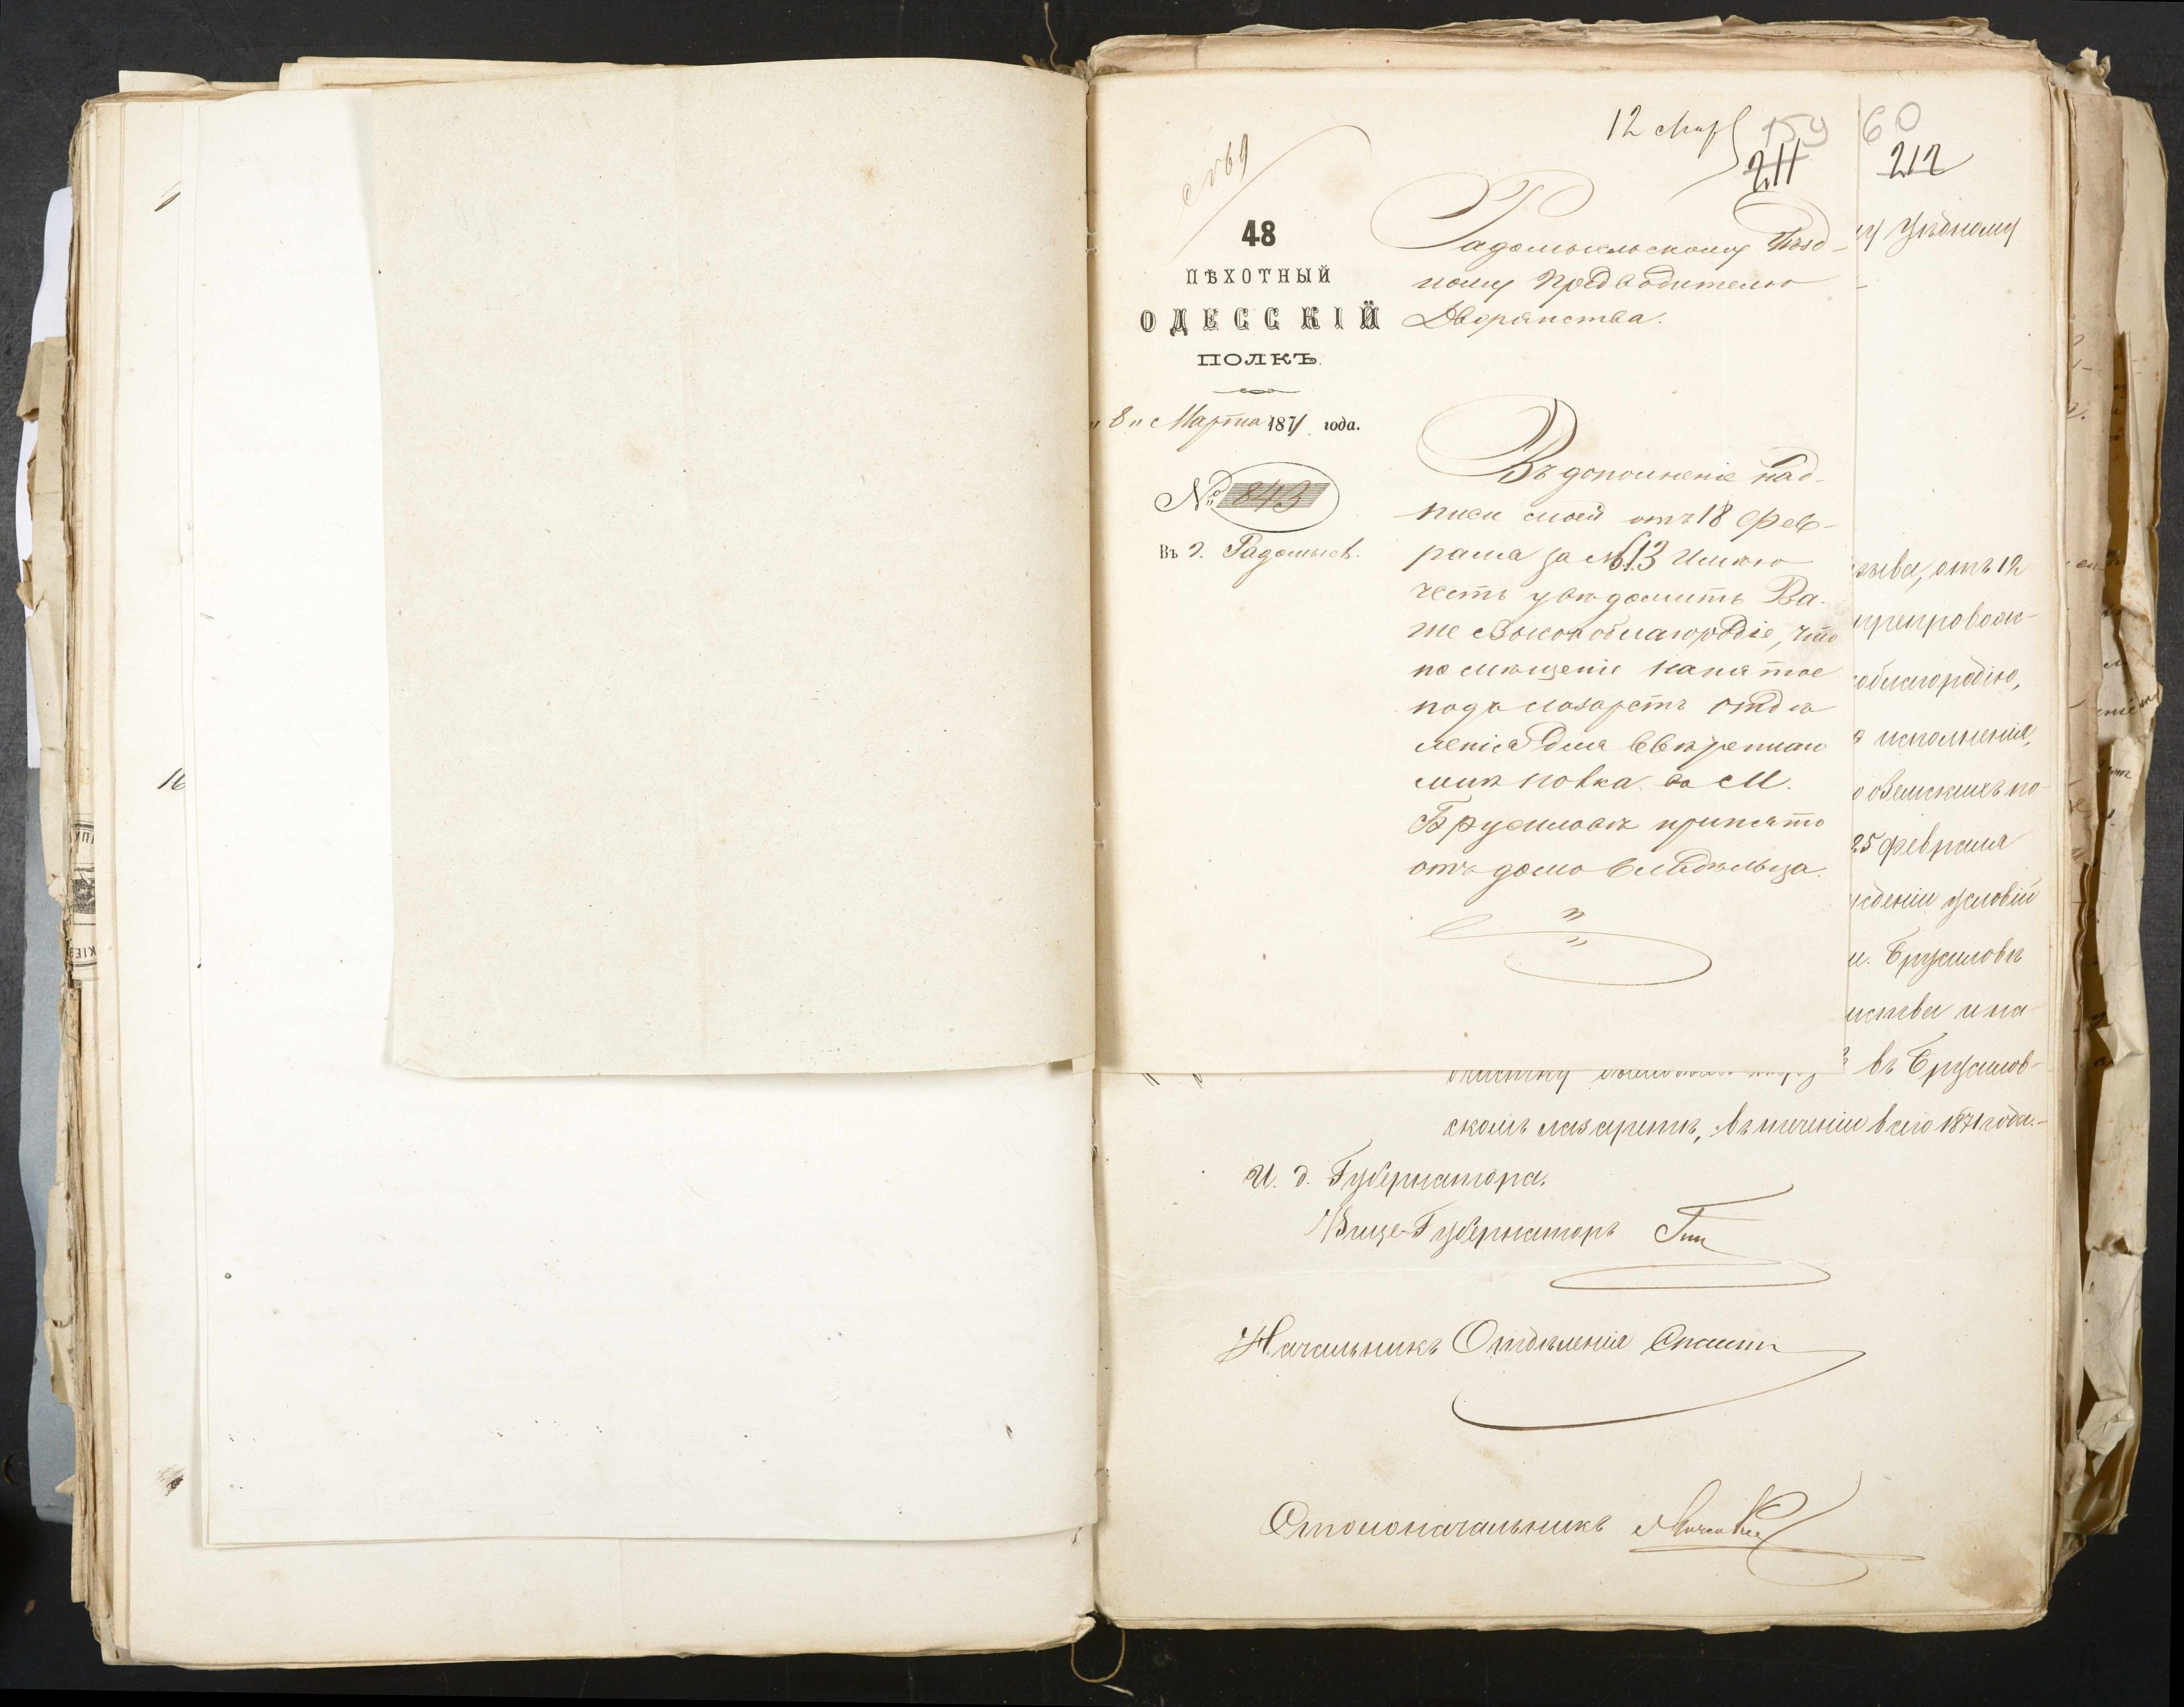 12 Мар
159
60
211
212
48
ПѢХОТНЫЙ
ОДЕССКІЙ
ПОЛКЪ.
"8" Марта 1871 года.
№ 843
Въ г. Радомысл.
Радомысльскому Уѣзд-
ному Предводителю
Дворянства.
Въ дополненіе над-
писи моей отъ 18 Фев-
раля за №13 Имѣю
честь увѣдомить Ва-
ше Высокоблагородіе, что
помѣщеніе нанятое
подъ лазаретъ отдѣ
ленія для ввѣреннаго
мнѣ полка въ М.
Брусиловѣ принято
отъ домовладѣльца.
у Уѣздному
отъ 12
препровож-
облагородію,
исполненія,
о Земскихъ по-
25 февраля
условій
м. Брусиловѣ
и на-
въ Брусилов-
скомъ лазаретѣ, въ теченіи всего 1871 года.-
И. д. Губернатора,
Вице-Губернаторъ
Начальникъ Отдѣленія
Столоначальникъ
16